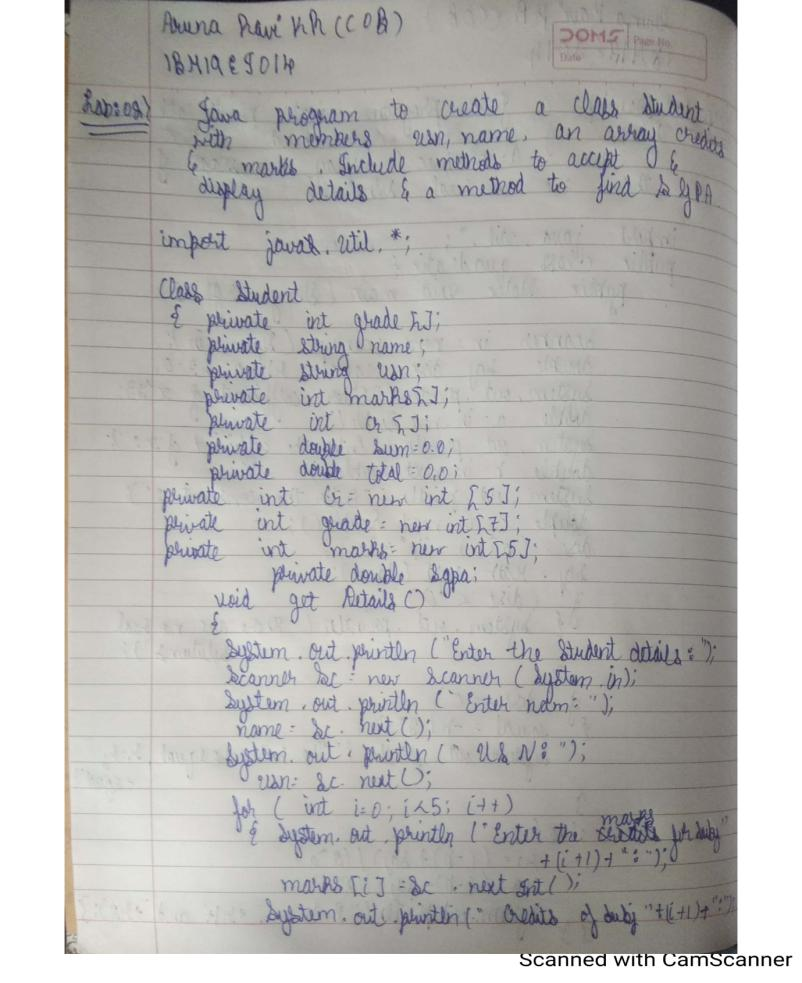 Aruna Ravi KR (COB)
1BM19EI014
DOMS
Page No.
Date
Lab:02)
Java program to create a class Student
with members usn, name, an array credits
& marks. Include methods to accept &
display details & a method to find SGPA
import java. util. *;
Class Student
{ private int grade [];
private string name;
private string usn;
private int marks[];
private int cr [];
private double sum=0.0;
private double total=0.0;
private int Cr= new int [5];
private int grade= new int[7];
private int marks= new int[5];
private double Sgpa;
void get Details ()
{
System. out. println ("Enter the Student details: ");
Scanner Sc = new Scanner (System. in);
System. out. println (" Enter nam: ");
name= Sc. next ();
System. out. println (" USN: ");
usn= Sc. next ();
for ( int i=0; i<5; i++)
{ System. out. println ("Enter the marks for subj"
+(i+1)+ ": ");
marks [i] = Sc . next Int ();
System. out. println (" Credits of subj "+(i+1)+":");
Scanned with CamScanner